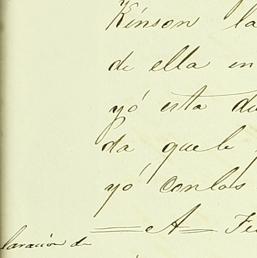 Kinson la
de ella en
yó esta du
da, que le
yó con los
= A = Fe
laracion de